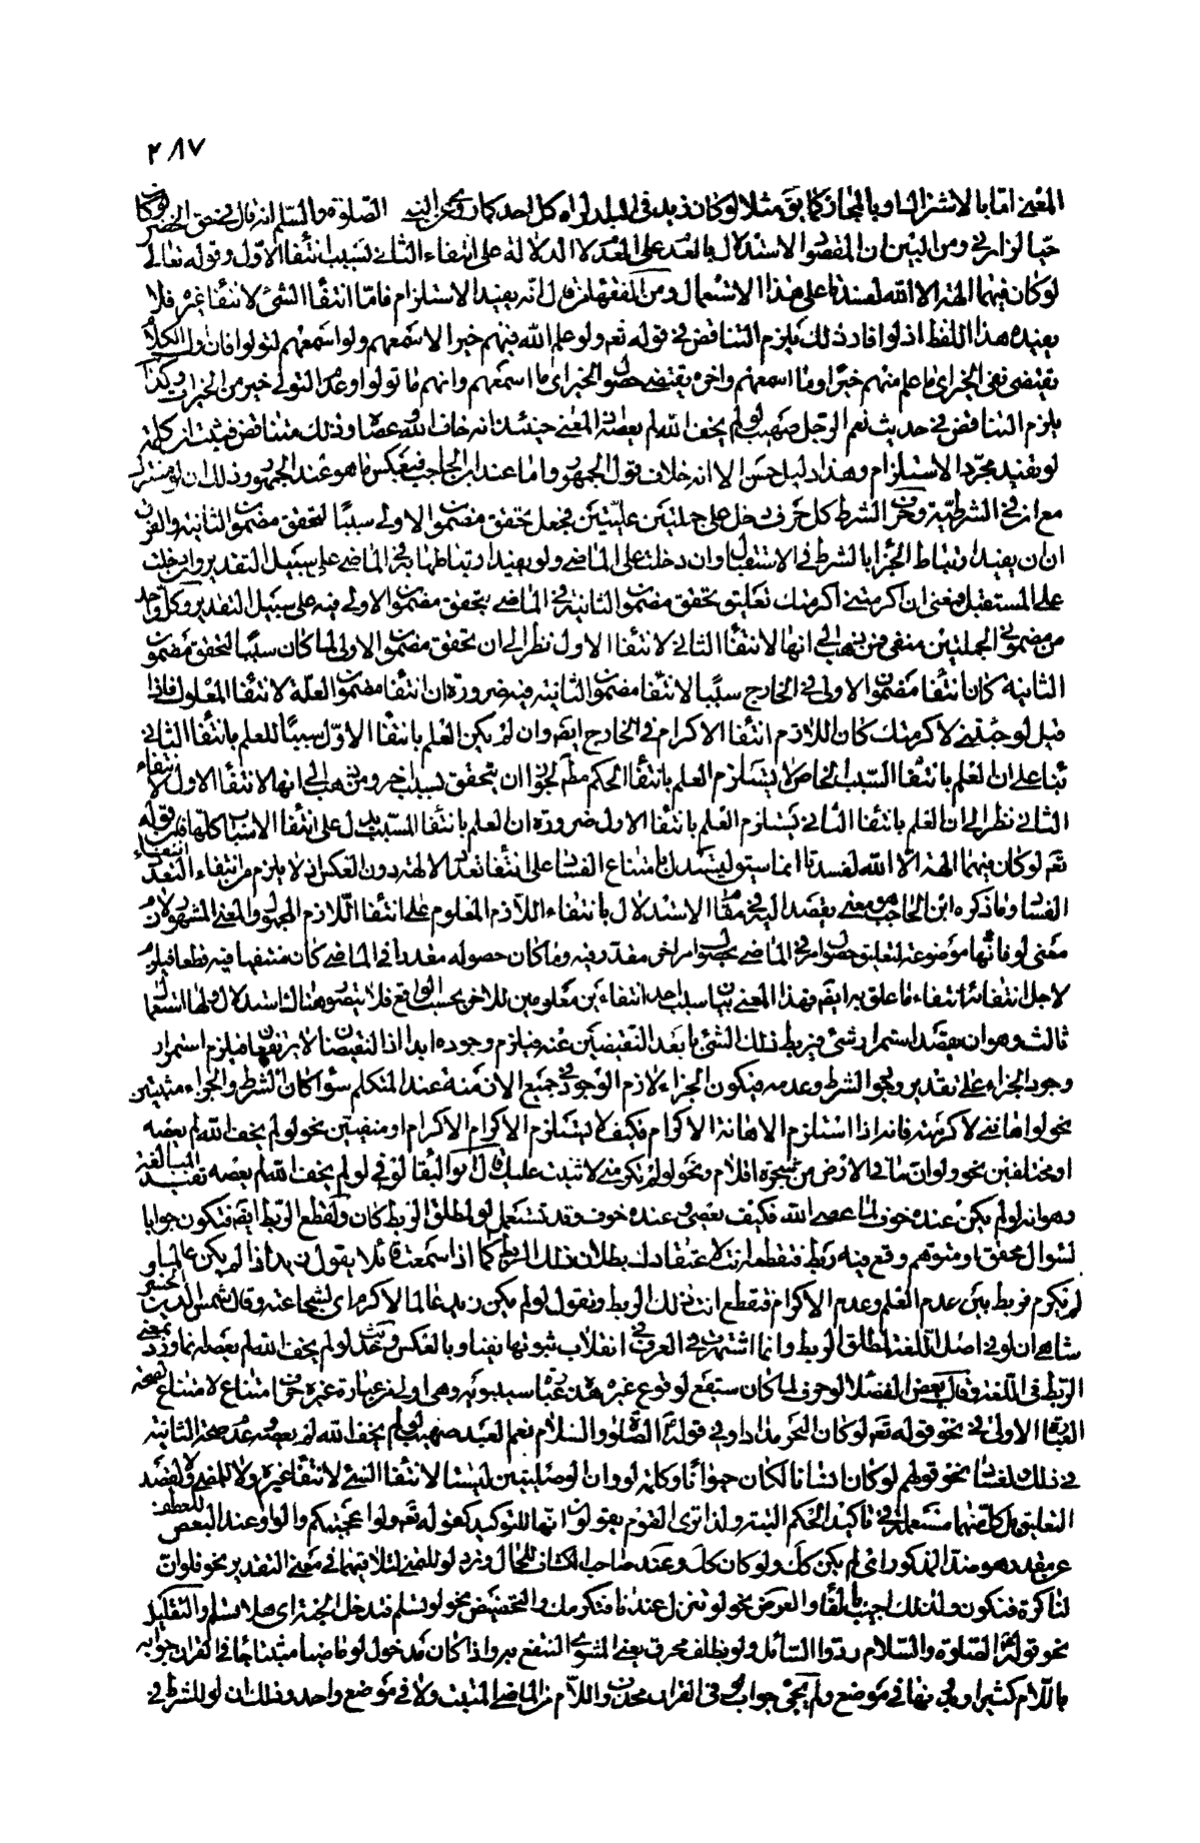 ٢٨٧
المعنى اما بالاشتراك او بالمجاز كما يق مثلا لو كان زيد في البلد لراه كل احد كما روي عن النبي الصلوة والسلم انه قال في حق الخضر لو كان
حيا لزارني ومن البين ان المقصود الاستدلال بالعدم على العدم لا الدلالة على انتفاء الثاني بسبب انتفا الاول وقوله تعالى
لو كان فيهما الهة الا الله لفسدتا على هذا الاستعمال ومن الفقها من قال انه يفيد الاستلزام فاما انتفا الشئ لانتفا غيره فلا
يفيده هذا اللفظ اذ لو افاد ذلك يلزم التناقض في قوله تعم ولو علم الله فيهم خيرا لاسمعهم ولو اسمعهم لتولوا فان اول الكلام
يقتضي نفي الخير اى ما علم منهم خيرا وما اسمعهم واخره يقتضي حصول الخير اى ما اسمعهم وانهم ما تولوا وعدم التولي خير من الخيرات وكذا
يلزم التناقض في حديث نعم الرجل صهيب لو لم يخف الله لم يعصه اذ المعنى حينئذ انه خاف الله وعصاه وذلك متناقض فيثبت ان كلمة
لو تفيد مجرد الاستلزام وهذا دليل حسن الا انه خلاف قول الجمهور واما عند ابن الحاجب فبعكس ما هو عند الجمهور وذلك ان لو مشترك
مع ان في الشرطية وحرف الشرط كل حرف دخل على جملتين فعليتين فجعل تحقق مضمون الاولى سببا لتحقق مضمون الثانية والفرق
ان ان يفيد ارتباط الجزا بالشرط في الاستقبال وان دخلت على الماضي ولو يفيد ارتباطها في الماضي على سبيل التقدير وان دخلت
على المستقبل فمعنى ان اكرمتني اكرمتك تعليق تحقق مضمون الثانية في الماضي بتحقق مضمون الاولى فيه على سبيل التقدير وكل واحد
من مضموني الجملتين منفي فمن ذهب الى انها لانتفا الثاني لانتفا الاول نظر الى ان تحقق مضمون الاولى لما كان سببا لتحقق مضمون
الثانية كان انتفا مضمون الاولى في الخارج سببا لانتفا مضمون الثانية فيه ضرورة ان انتفا مضمون العلة لانتفا المعلول فاذا
قيل لو جئتني لاكرمتك كان اللازم انتفا الاكرام في الخارج ايضا وان لم يكن العلم بانتفا الاول سببا للعلم بانتفا الثاني
بنا على ان العلم بانتفا السبب الخاص لا يستلزم العلم بانتفا الحكم مطلقا لجواز ان يتحقق بسبب اخر ومن ذهب الى انها لانتفا الاول لانتفاء
الثاني نظر الى ان العلم بانتفا الثاني يستلزم العلم بانتفا الاول ضرورة ان العلم بانتفا المسبب يدل على انتفا الاسباب كلها فمن قوله
تعم لو كان فيهما الهة الا الله لفسدتا انما سيق ليستدل بامتناع الفساد على انتفا تعدد الالهة دون العكس اذ لا يلزم من انتفاء التعدد انتفاء
الفساد وما ذكره ابن الحاجب هو معنى يقصد اليه في مقام الاستدلال بانتفاء اللازم المعلوم على انتفا اللازم المجهول والمعنى المشهور لان
معنى لو فانها موضوعة لتعليق حصول امر في الماضي بحصول امر اخر مقدر فيه وما كان حصوله مقدرا في الماضي كان منتفيا فيه قطعا فيلزم
لاجل انتفائه انتفاء ما علق به ايضا فهذا المعنى بيان سبب احد انتفاءين معلومين للاخر بحسب الواقع فلا يتصور هناك استدلال ولها استعمال
ثالث وهو ان يقصد استمرار شئ فيربط ذلك الشئ بابعد النقيضين عنه فيلزم وجوده ابدا اذ النقيضان لا يرتفعان فيلزم استمرار
وجود الجزاء على تقدير وجود الشرط وعدمه فيكون الجزاء لازم الوجود في جميع الازمنة عند المتكلم سوا كان الشرط والجزاء مثبتين
نحو لو اهانني لاكرمته فانه اذا استلزم الاهانة الاكرام فكيف لا يستلزم الاكرام الاكرام او منفيين نحو لو لم يخف الله لم يعصه
او مختلفين نحو ولو ان ما في الارض من شجرة اقلام ونحو لو لم تكرمني لاثنيت عليك قال ابو البقا لو في لو لم يخف الله لم يعصه تفيد المبالغة
وهو انه لو لم يكن عنده خوف لما عصى الله فكيف يعصي وعنده خوف وقد تستعمل لو لمطلق الربط كان ولقطع الربط ايضا فتكون جوابا
لسوال محقق او متوهم وقع فيه ربط فتقطعه انت لاعتقادك بطلان ذلك الربط كما اذا سمعت قائلا يقول زيد اذا لم يكن عالما
لم يكرم فربط بين عدم العلم وعدم الاكرام فتقطع انت ذلك الربط وتقول لو لم يكن زيد عالما لاكرم اى لشجاعته وقال شمس الدين الخسرو
شاهي ان لو في اصل اللغة لمطلق الربط وانما اشتهرت في العرف في انقلاب ثبوتها نفيا وبالعكس وحديث لو لم يخف الله لم يعصه انما ورد بمعنى
الربط في اللغة وقال بعض الفضلا لو حرف لما كان سيقع لوقوع غيره هذه عبارة سيبويه وهي اولى من عبارة غيره حرف امتناع لامتناع لصحة
العبارة الاولى في نحو قوله تعم لو كان البحر مدادا وفي قوله الصلوة والسلام نعم العبد صهيب لو لم يخف الله لم يعصه وعدم صحة الثانية
في ذلك لفساد نحو قولهم لو كان انسانا لكان حيوانا وكلمة لو وان الوصليتين ليستا لانتفا الشئ لانتفا غيره ولا للمضي ولا لقصد
التعليق بل كل منهما مستعملة في تاكيد الحكم البتة ولذا ترى القوم يقولون انها للتوكيد كقوله تعم ولو اعجبتكم والواو عند البعض للعطف
على مقدر هو ضد المذكور اى لم يكن كذلك ولو كان كذلك وعند صاحب الكشاف للحال وترد لو للتمني لتلاقيهما في معنى التقدير نحو فلو ان
لنا كرة فنكون ولذلك اجيب بالفاء والعرض نحو لو تنزل عندنا فنكرمك والتحضيض نحو لو تسلم فتدخل الجنة اى هلا تسلم والتقليل
نحو قوله الصلوة والسلام ردوا السائل ولو بظلف محرق يعني المشوي للتنفع به واذا كان مدخول لو ماضيا مثبتا جاء في القران جوابه
باللام كثيرا وبدونها في موضع ولم يجئ جواب لو في القران محذوف اللام من الماضي المثبت ولا في موضع واحد وذلك ان لو للشرط في